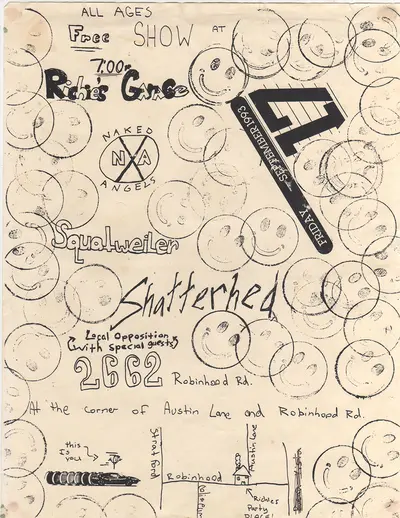 ALL AGES
Free SHOW AT
7:00
Richie's Garage
NAKED
N A
ANGELS
17
FRIDAY SEPTEMBER 1993
Squatweiler
Shatterhed
Local Opposition
(with special guests)
2662 Robinhood Rd.
At the corner of Austin Lane and Robinhood Rd.
this
Is
you!
Stratford
Robinhood
Austin Lane
Richies
Party
PLACE!